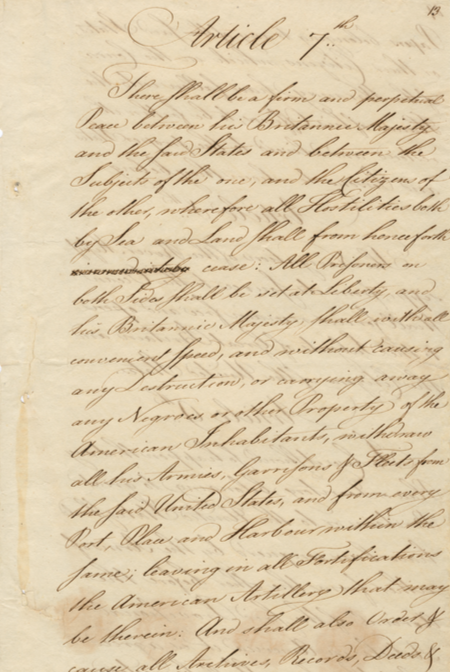 13
Article 7.th
There shall be a firm and perpetual
Peace between his Britannic Majesty
and the said States and between the
Subjects of the one, and the Citizens of
the other, wherefore all Hostilities both
by Sea and Land shall from henceforth
cease: All Prisoners on
both Sides shall be set at Liberty, and
his Britannic Majesty, shall, with all
convenient speed, and without causing
any Destruction, or carrying away
any Negroes or other Property of the
American Inhabitants, withdraw
all his Armies, Garrisons & Fleets from
the said United States, and from every
Port, Place and Harbour within the
same; leaving in all Fortifications
the American Artillery that may
be therein: And shall also Order &
cause all Archives, Records, Deeds &